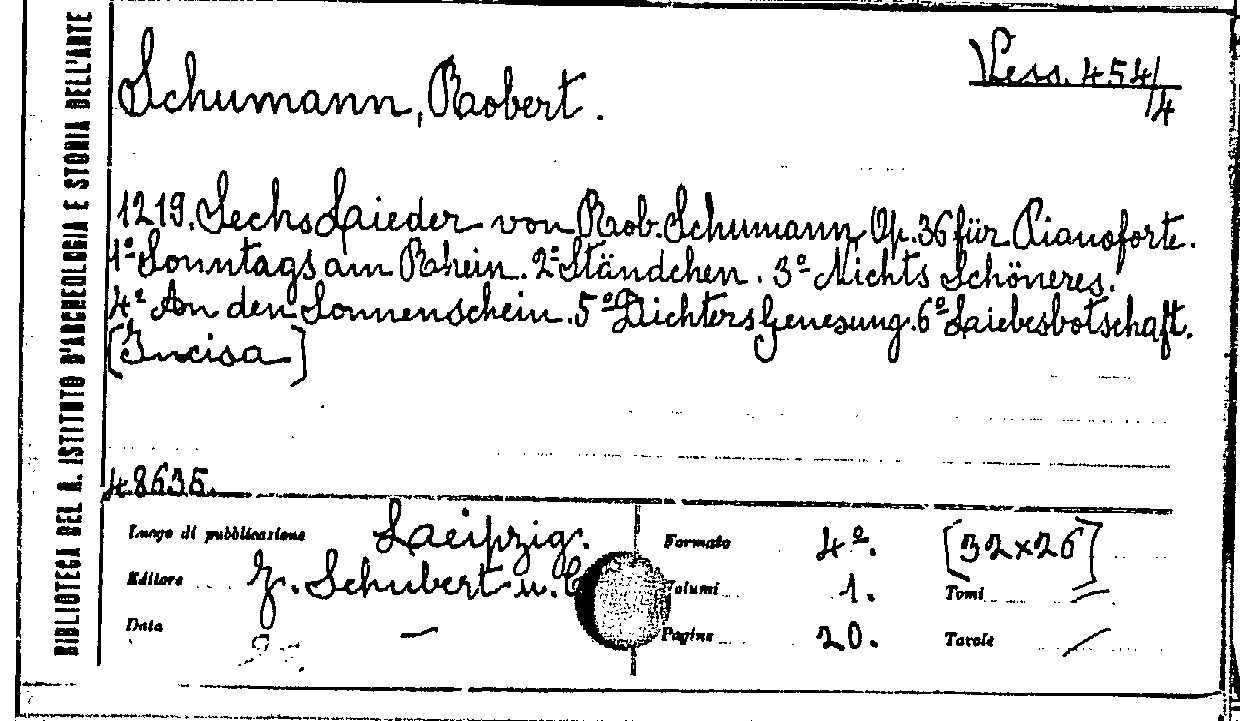 BIBLIOTECA DEL R. ISTITUTO D'ARCHEOLOGIA E STORIA DELL'ARTE
Schumann, Robert.
Vess. 454/4
1219. Sechs Lieder von Rob. Schumann Op. 36 für Pianoforte.
1º Sonntags am Rhein. 2º Ständchen. 3º Nichts Schöneres.
4º An den Sonnenschein. 5º Dichters Genesung. 6º Liebesbotschaft.
[Incisa]
48635.
Luogo di pubblicazione Leipzig.
Editore J. Schubert u. C
Data —
Formato 4º. [32x26]
Volumi 1. Tomi =
Pagine 20. Tavole /